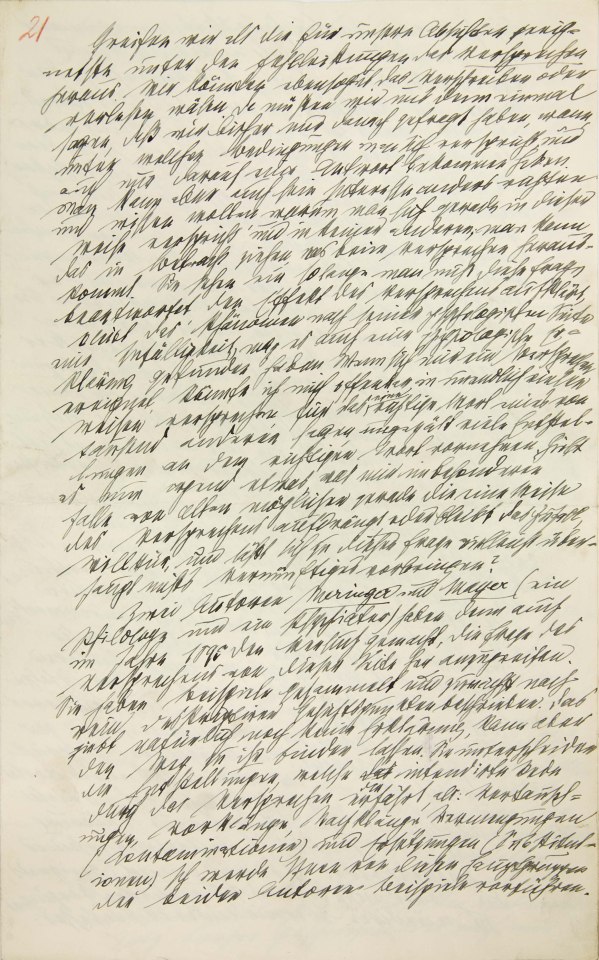 21
Greifen wir als die für unsere Absichten geeig-
netste unter den Fehlleistungen das Versprechen
heraus. Wir könnten ebensogut das Verschreiben oder
Verlesen wählen. Da müssen wir uns denn einmal
sagen, daß wir bisher nur danach gefragt haben, wann,
unter welchen Bedingungen man sich verspricht, und
auch nur darauf eine Antwort bekommen haben.
Man kann aber auch sein Interesse anders richten
und wissen wollen, warum man sich gerade in dieser
Weise verspricht und in keiner anderen; man kann
das in Betracht ziehen, was beim Versprechen heraus-
kommt. Sie sehen ein, solange man nicht diese Frage
beantwortet, den Effekt des Versprechens aufklärt,
bleibt das Phänomen nach seiner psychologischen Seite
eine Zufälligkeit, mag es auch eine physiologische Er-
klärung gefunden haben. Wenn sich mir ein Versprechen
ereignet, könnte ich mich offenbar in unendlich vielen
Weisen versprechen, für das eine richtige Wort eines von
tausend anderen sagen, ungezählt viele Entstel-
lungen an dem richtigen Wort vornehmen. Gibt
es nun irgend etwas, was mir im besonderen
Falle von allen möglichen gerade die eine Weise
des Versprechens aufdrängt, oder bleibt das Zufall,
Willkür, und läßt sich zu dieser Frage vielleicht über-
haupt nichts Vernünftiges vorbringen?
Zwei Autoren, Meringer und Mayer (ein
Philologe und ein Psychiater) haben denn auch
im Jahre 1895 den Versuch gemacht, die Frage des
Versprechens von dieser Seite her anzugreifen.
Sie haben Beispiele gesammelt und zunächst nach
rein deskriptiven Gesichtspunkten beschrieben. Das
gibt natürlich noch keine Erklärung, kann aber
den Weg zu ihr finden lassen. Sie unterscheiden
die Entstellungen, welche die intendierte Rede
durch das Versprechen erfährt, als: Vertausch-
ungen, Vorklänge, Nachklänge, Vermengungen
(Kontaminationen) und Ersetzungen (Substitut-
ionen). Ich werde Ihnen von diesen Hauptgruppen
der beiden Autoren Beispiele vorführen.